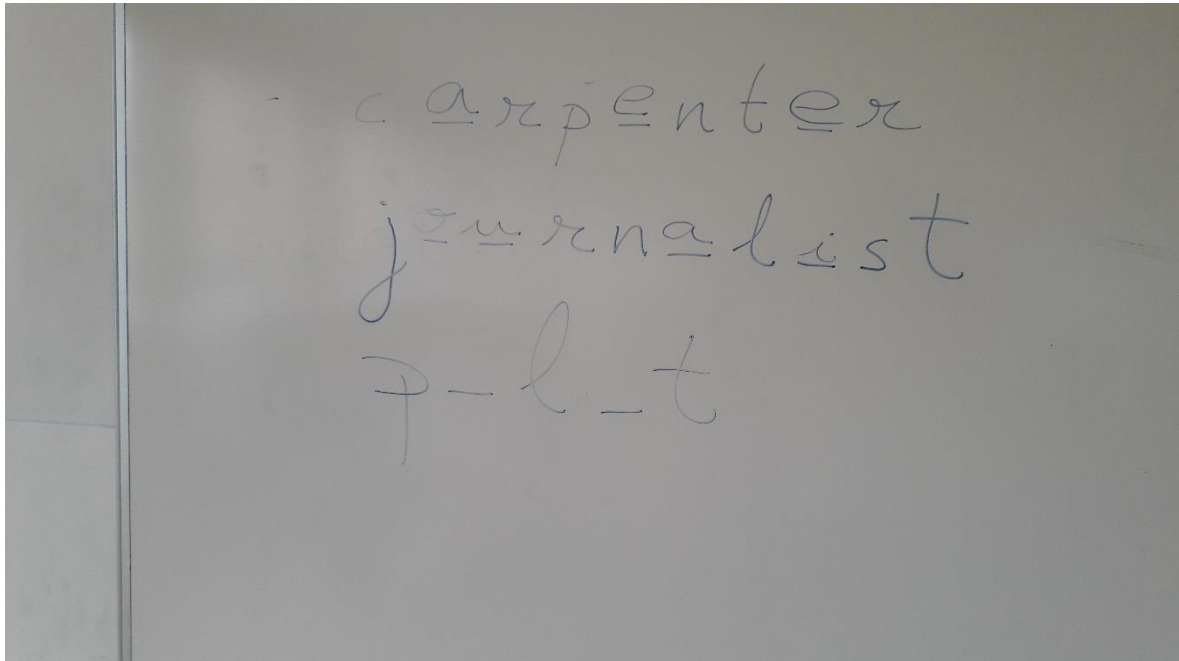 carpenter
journalist
p_l_t